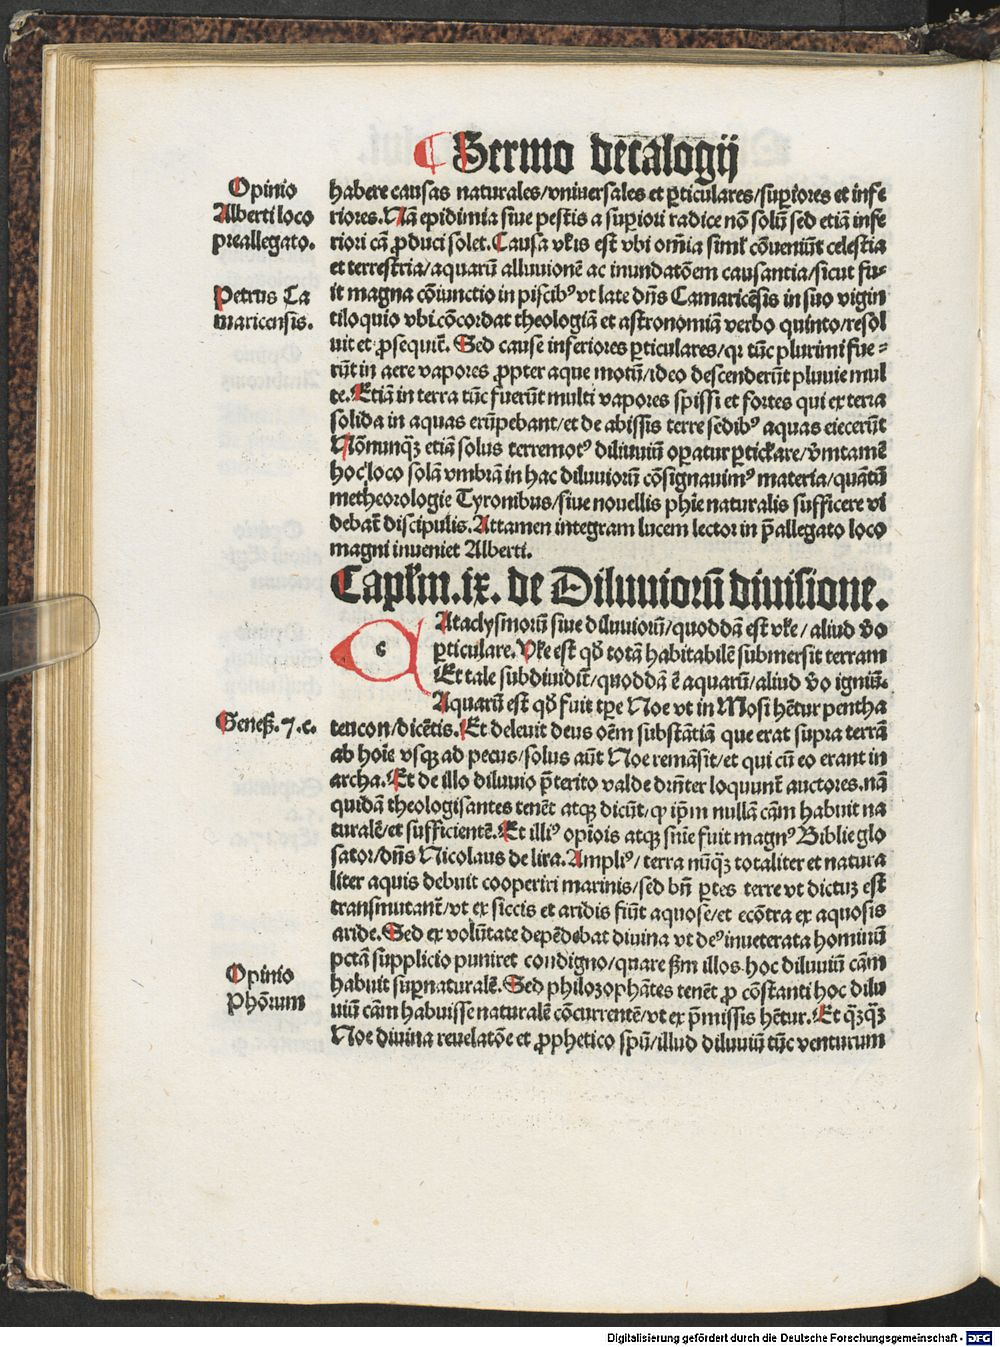 ¶ Sermo decalogij
Opinio
Alberti loco
preallegato.
Petrus Ca
maricensis.
habere causas naturales/vniuersales et ꝑticulares/suꝑiores et infe
riores. Nā epidimia siue pestis a suꝑiori radice nō solū sed etiā infe
riori cā ꝓduci solet. Causa vl̓is est vbi om̄ia siml̓ cōueniūt celestia
et terrestria/aquarū alluuionē ac inundatōem causantia/sicut fu⸗
it magna cōiunctio in piscibꝰ vt late dn̄s Camaricēsis in suo vigin
tiloquio vbi cōcordat theologiā et astronomiā verbo quinto/resol
uit et ꝓsequit̄. Sed cause inferiores ꝑticulares/qꝛ tūc plurimi fue⸗
rūt in aere vapores ꝓpter aque motū/ideo descenderūt pluuie mul
te. Etiā in terra tūc fuerūt multi vapores spissi et fortes qui ex terra
solida in aquas erūpebant/et de abissis terre sedibꝰ aquas eiecerūt
Nōnunqꝫ etiā solus terremotꝰ diluuiū oꝑatur ꝑticl̓are/v̄mtamē
hoc loco solā vmbrā in hac diluuiorū cōsignauimꝰ materia/quātū
metheorologie Tyronibus/siue nouellis phīe naturalis sufficere vi
debat̄ discipulis. Attamen integram lucem lector in p̄allegato loco
magni inueniet Alberti.
Capl̓m. ix. de Diluuiorū diuisione.
c
Ataclysmorū siue diluuiorū/quoddā est vl̓e/aliud v̄o
ꝑticulare. Vl̓e est qd̓ totā habitabilē submersit terram
Et tale subdiuidit̄/quoddā ē aquarū/aliud v̄o igniū.
Aquarū est qd̓ fuit tꝑe Noe vt in Mosi hētur pentha
Genes̄. 7. c.
teucon/dicētis. Et deleuit deus oēm substātiā que erat supra terrā
ab hoīe vsqꝫ ad pecus/solus aūt Noe remāsit/et qui cū eo erant in
archa. Et de illo diluuio p̄terito valde dr̄nter loquunt̄ auctores. nā
quidā theologisantes tenēt atqꝫ dicūt/ꝙ ip̄m nullā cām habuit na
turalē/et sufficientē. Et illiꝰ opiōis atqꝫ sn̄ie fuit magnꝰ Biblie glo
sator/dn̄s Nicolaus de lira. Ampliꝰ/terra nūqꝫ totaliter et natura
liter aquis debuit cooperiri marinis/sed bn̄ ꝑtes terre vt dictuꝫ est
transmutant̄/vt ex siccis et aridis fiūt aquose/et ecōtra ex aquosis
aride. Sed ex volūtate depēdebat diuina vt deꝰ inueterata hominū
pctāta supplicio puniret condigno/quare s̄m illos hoc diluuiū cām
Opinio
Phōum
habuit suꝑnaturalē. Sed philozophātes tenēt ꝓ cōstanti hoc dilu
uiū cām habuisse naturalē cōcurrentē/vt ex p̄missis hētur. Et qꝫqꝫ
Noe diuina reuelatōe et ꝓphetico spū/illud diluuiū tūc venturum
Digitalisierung gefördert durch die Deutsche Forschungsgemeinschaft - DFG